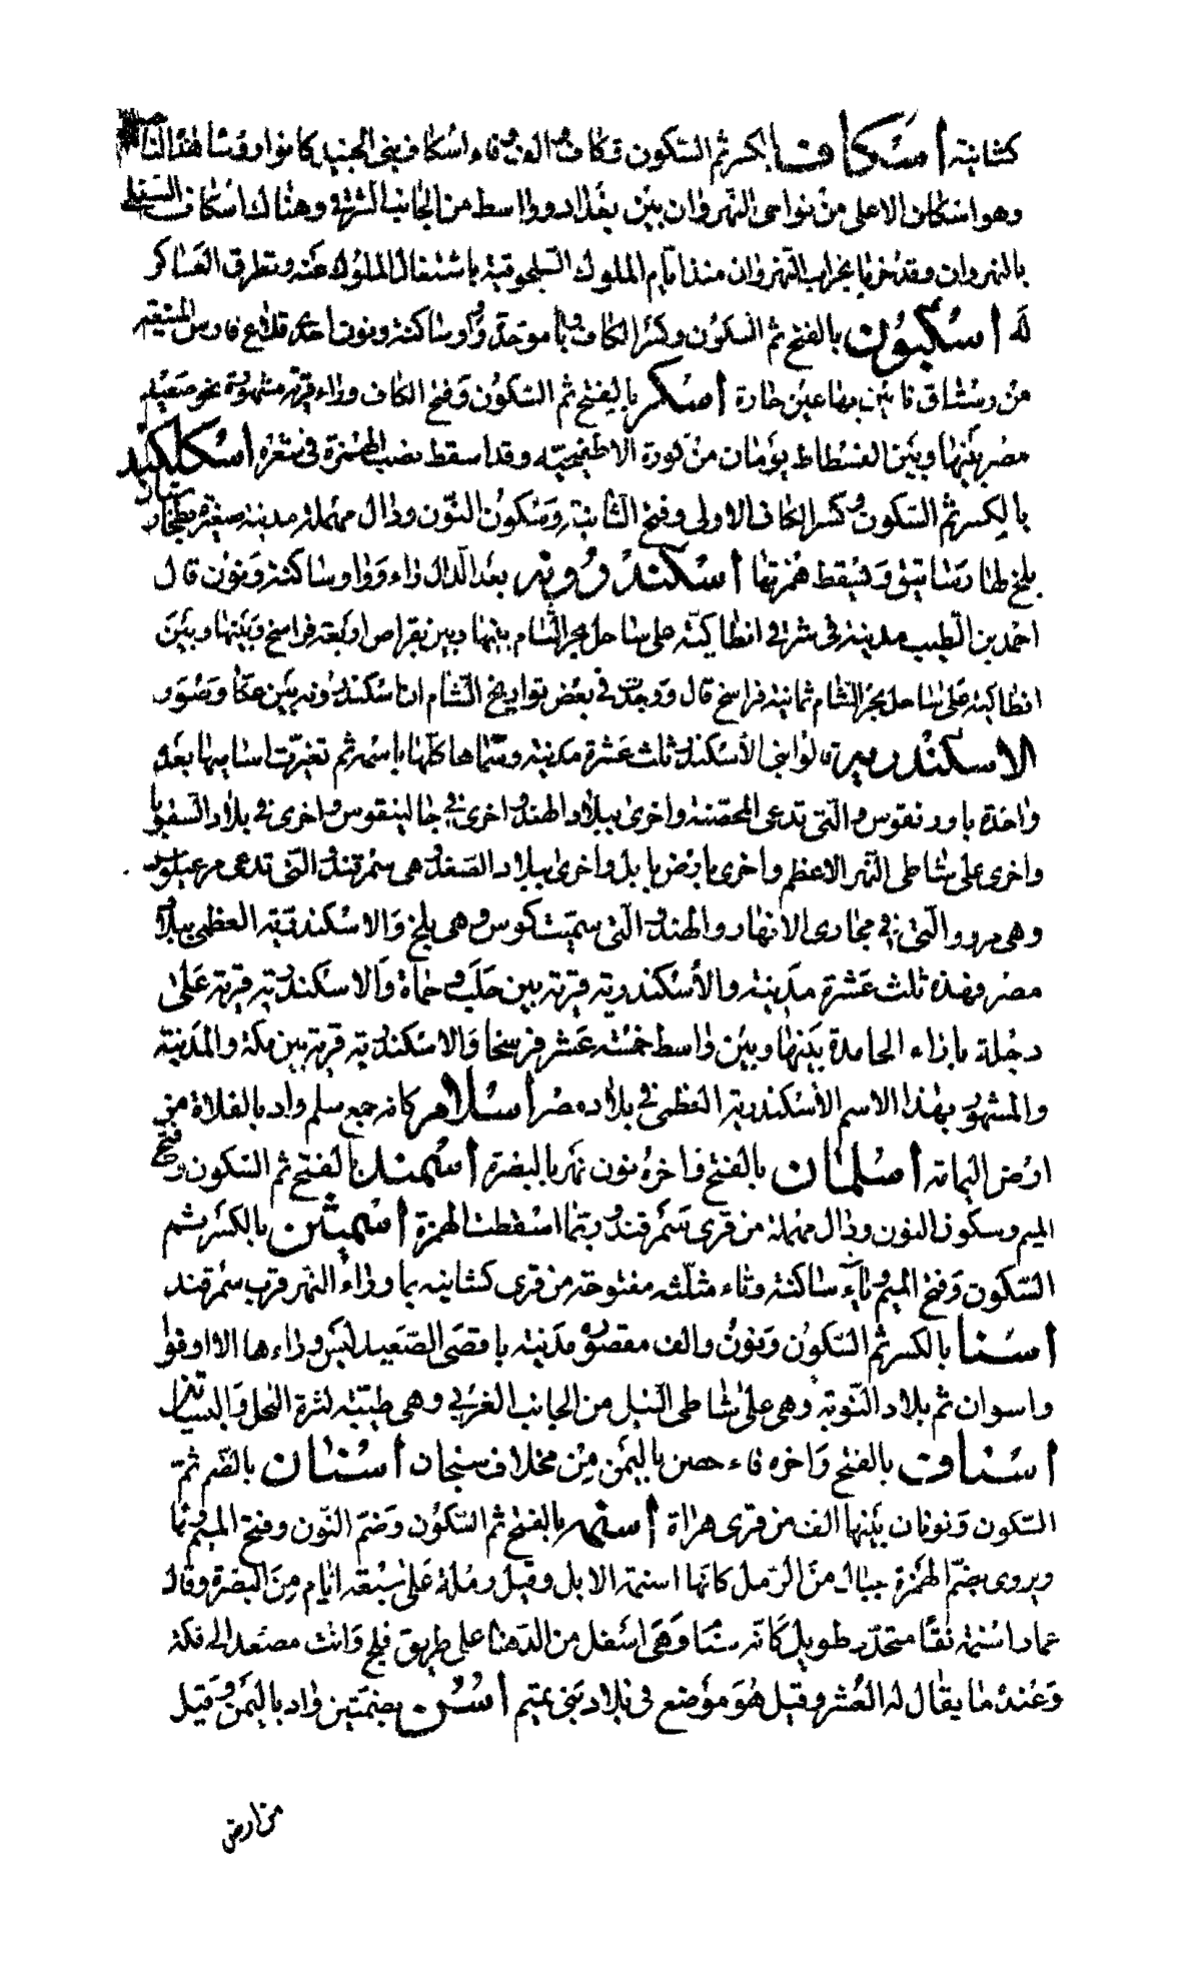 كشانية أسكاف بالكسر ثم السكون وكاف والف وفاء اسكاف بنى الجنيد كانوا رؤسا هذه الناحية
وهو اسكاف الاعلى من نواحى النهروان بين بغداد وواسط من الجانب الشرقى وهناك اسكاف السفلى
بالنهروان وقد خربا بخراب النهروان منذ ايام الملوك السلجوقية باشتغال الملوك عنه وتطرق العساكر
له أسكبون بالفتح ثم السكون وكسر الكاف وبا موحدة وواو ساكنة ونون احدى قلاع فارس المنيعة
من رستاق نائين بها عين حارة أسكر بالفتح ثم السكون وفتح الكاف وراء قرية مشهورة نحو صعيد
مصر بينها وبين الفسطاط يومان من كورة الاطفيحية وقد اسقط نصيب الهمزة فى شعره اسكلكند
بالكسر ثم السكون وكسر الكاف الاولى وفتح الثانية وسكون النون ودال مهملة مدينة صغيرة بطخارستان
بلخ لها رساتيق وتسقط همزتها أسكندرونة بعد الدال راء وواو ساكنة ونون قال
احمد بن الطيب مدينة فى شرقى انطاكية على ساحل بحر الشام بينها وبين بغراص اربعة فراسخ وبينها وبين
انطاكية على ساحل بحر الشام ثمانية فراسخ قال ووجدت فى بعض تواريخ الشام ان اسكندرونة بين عكا وصور
الاسكندرية قالوا بنى الأسكندر ثلث عشرة مدينة وسماها كلها باسمه ثم تغيرت اساميها بعده
واحدة باورنقوس والتى تدعى المحصنة واخرى ببلاد الهند واخرى فى جالينقوس واخرى فى بلاد السقوياسيس
واخرى على شاطى النهر الاعظم واخرى بارض بابل واخرى ببلاد الصغد هى سمرقند والتى تدعى مرغبلوس
وهى مرو والتى فى مجارى الانهار والهند والتى سميت كوس وهى بلخ والاسكندرية العظمى ببلاد
مصر فهذه ثلث عشرة مدينة والأسكندرية قرية بين حلب وحماة والاسكندرية قرية على
دجلة بازاء الجامدة بينها وبين واسط خمسة عشر فرسخا والاسكندرية قرية بين مكة والمدينة
والمشهور بهذا الاسم الأسكندرية العظمى فى بلاد مصر أسلام كانه جمع سلم واد بالفلاة من
ارض اليمامة أسلمان بالفتح واخره نون نهر بالبصرة أسمند بالفتح ثم السكون وفتح
الميم وسكون النون ودال مهملة من قرى سمرقند وربما اسقطت الهمزة أسميثن بالكسر ثم
السكون وفتح الميم وياء ساكنة وثاء مثلثه مفتوحة من قرى كشانيه بما وراء النهر قرب سمرقند
أسنا بالكسر ثم السكون ونون والف مقصورة مدينة باقصى الصعيد ليس وراءها الا ادفوا
واسوان ثم بلاد النوبة وهى على شاطى النيل من الجانب الغربى وهى طيبة كثيرة النخل والبساتين
أسناف بالفتح واخره فاء حصن باليمن من مخلاف سنحان أسنان بالضم ثم
السكون ونونان بينها الف من قرى هراة أسنمة بالفتح ثم السكون وضم النون وفتح الميم وها
ويروى بضم الهمزة جبال من الرمل كانها اسنمة الابل وقيل رملة على سبعة ايام من البصرة وقال
عمارة اسنمة نقا محدد طويل كانه سنام وهى اسفل من الدهنا على طريق فلج وانت مصعد الى مكة
وعنده ما يقال له العشر وقيل هو موضع فى بلاد بنى تميم أسن بضمتين واد باليمن وقيل
من ارض